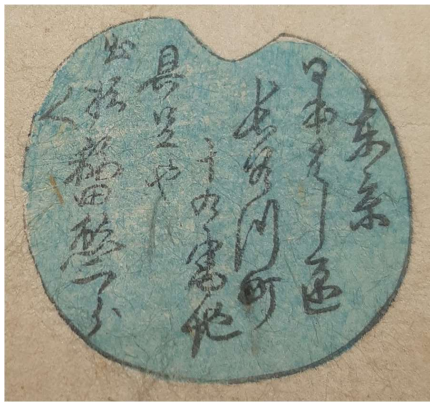 東京
日本はし區
長谷川町
十九番地
具足や
出板人 福田熊二郎